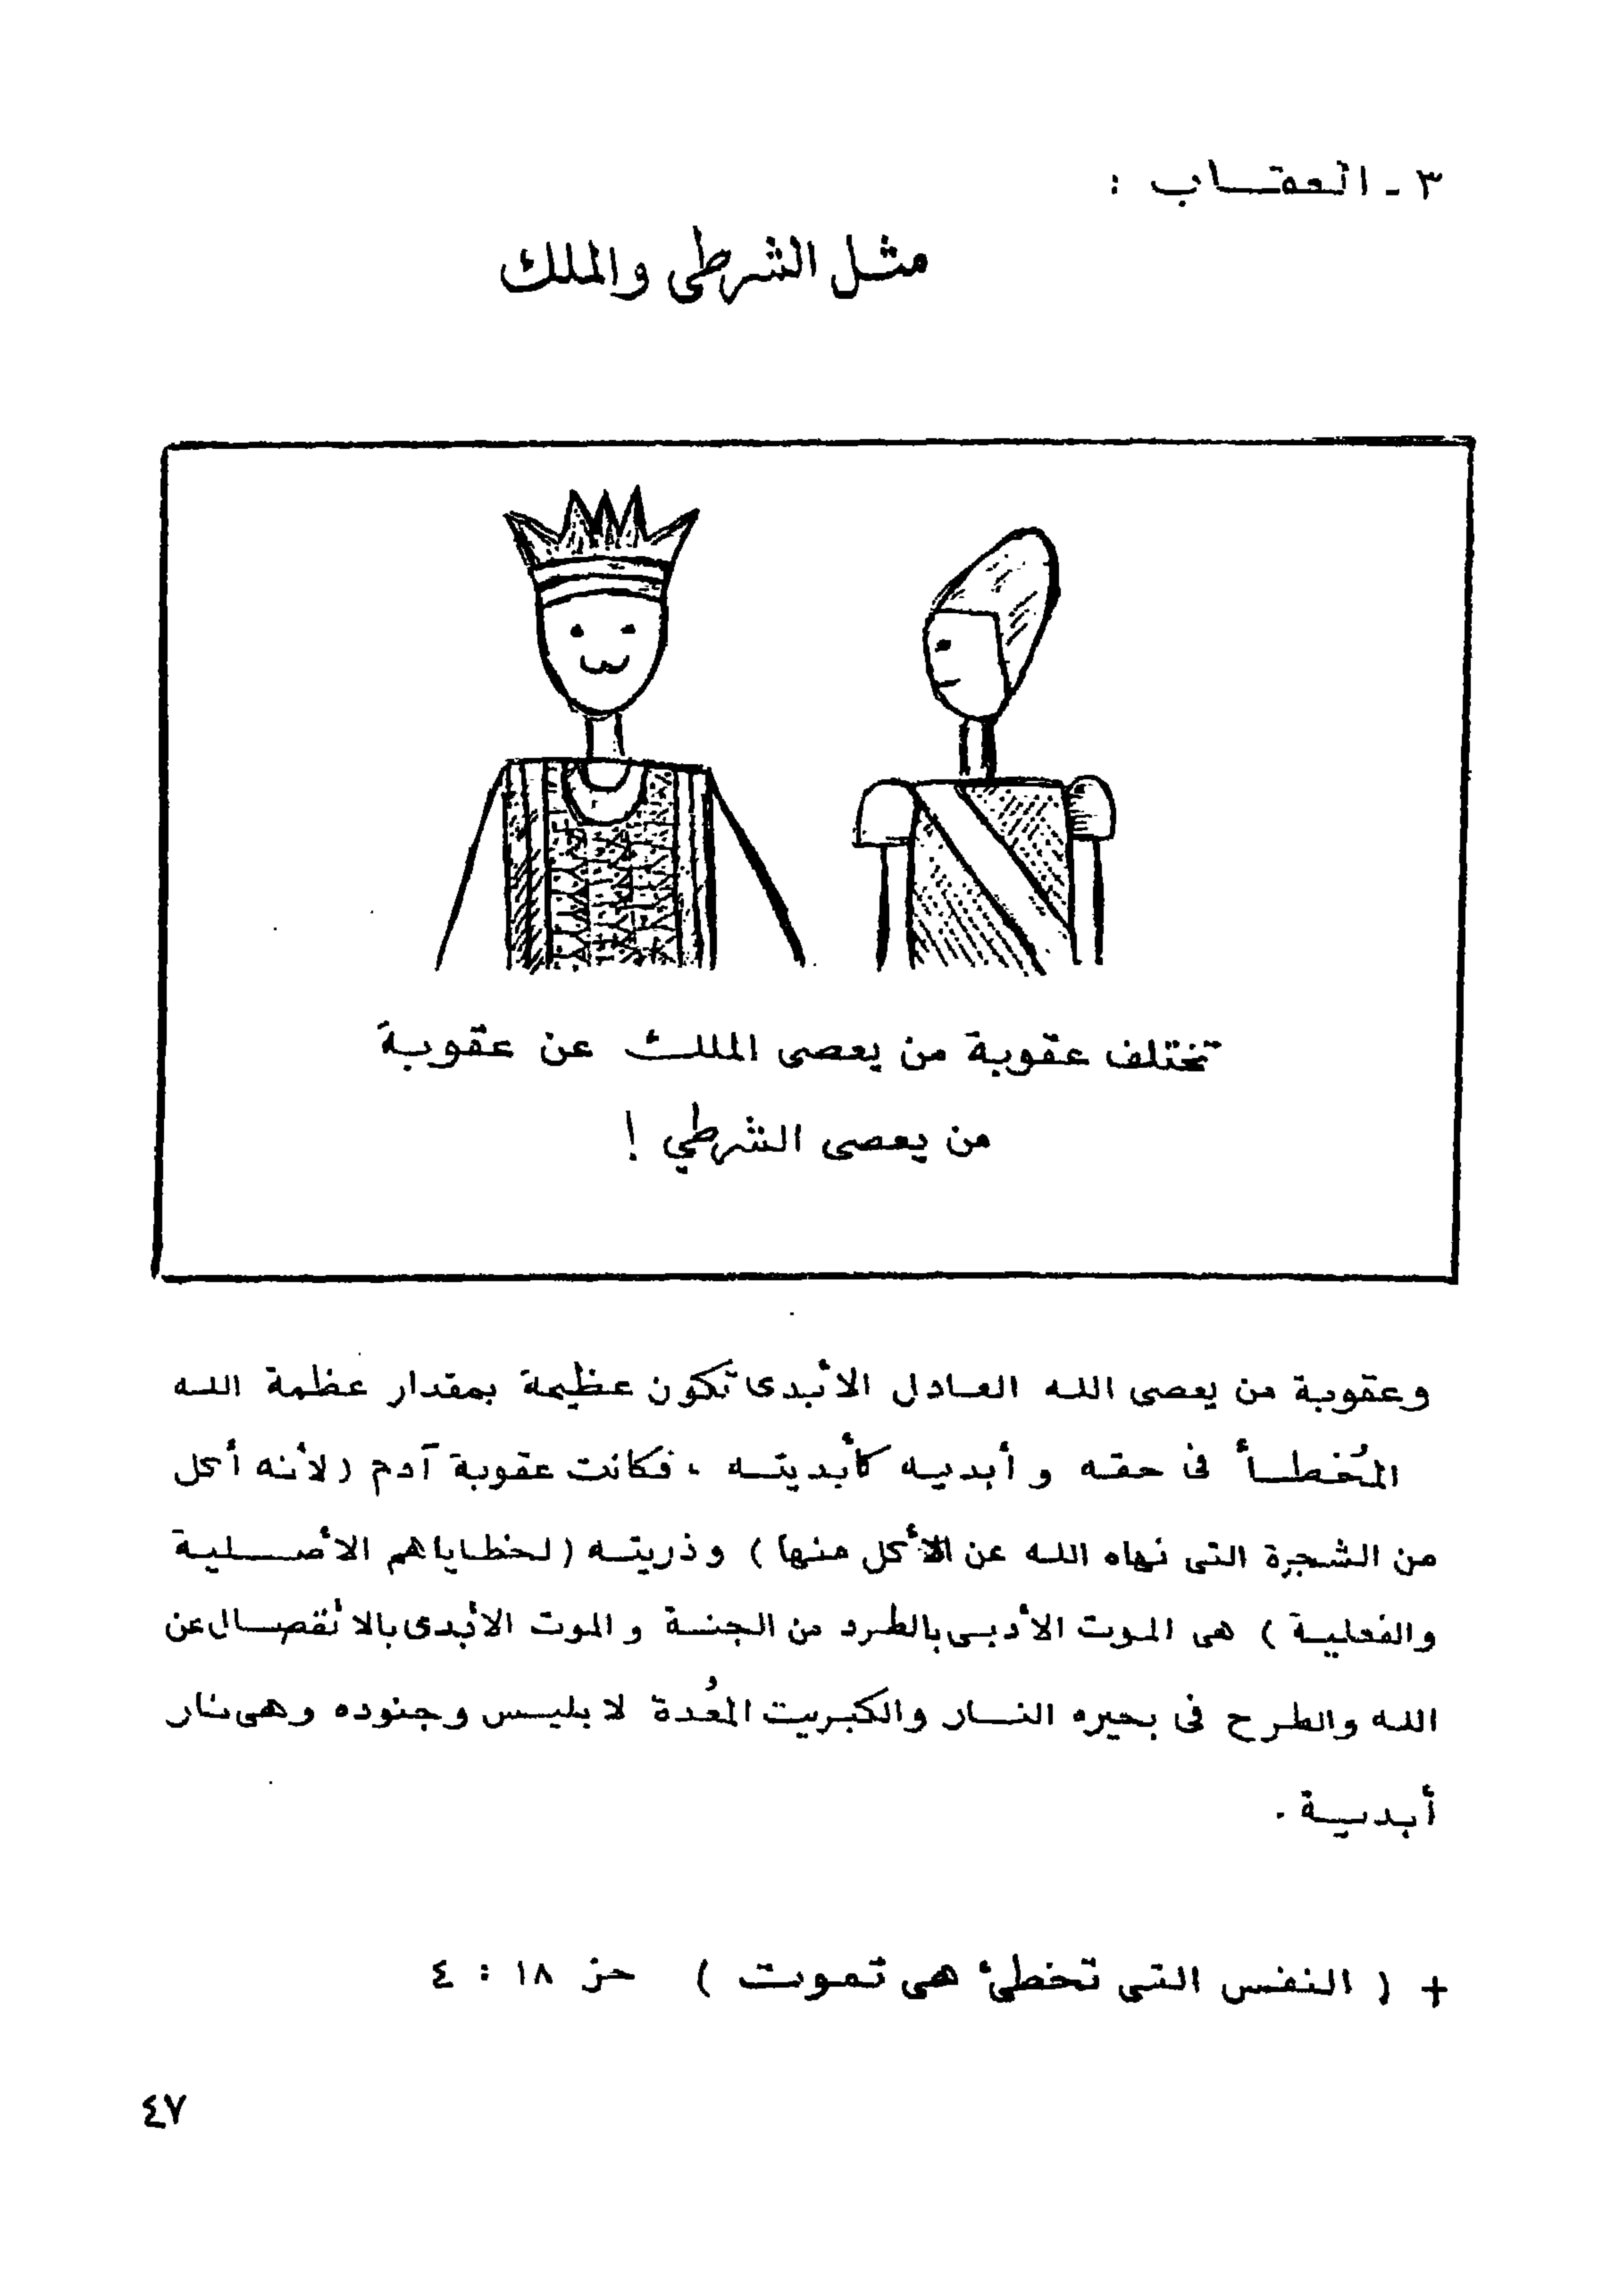 ٣ - العقاب :
مثل الشرطى والملك
تختلف عقوبة من يعصى الملك عن عقوبة
من يعصى الشرطي !
وعقوبة من يعصى الله العادل الأبدى تكون عظيمة بمقدار عظمة الله
المُخطأ فى حقه و أبديه كأبديته ، فكانت عقوبة آدم ( لأنه أكل
من الشجرة التى نهاه الله عن الأكل منها ) وذريته ( لخطاياهم الأصلية
والفعلية ) هى الموت الأدبى بالطرد من الجنة و الموت الأبدى بالأنفصال عن
الله والطرح فى بحيره النار والكبريت المُعدة لابليس وجنوده وهى نار
أبدية .
+ ( النفس التى تخطئ هى تموت ) حز ١٨ : ٤
٤٧